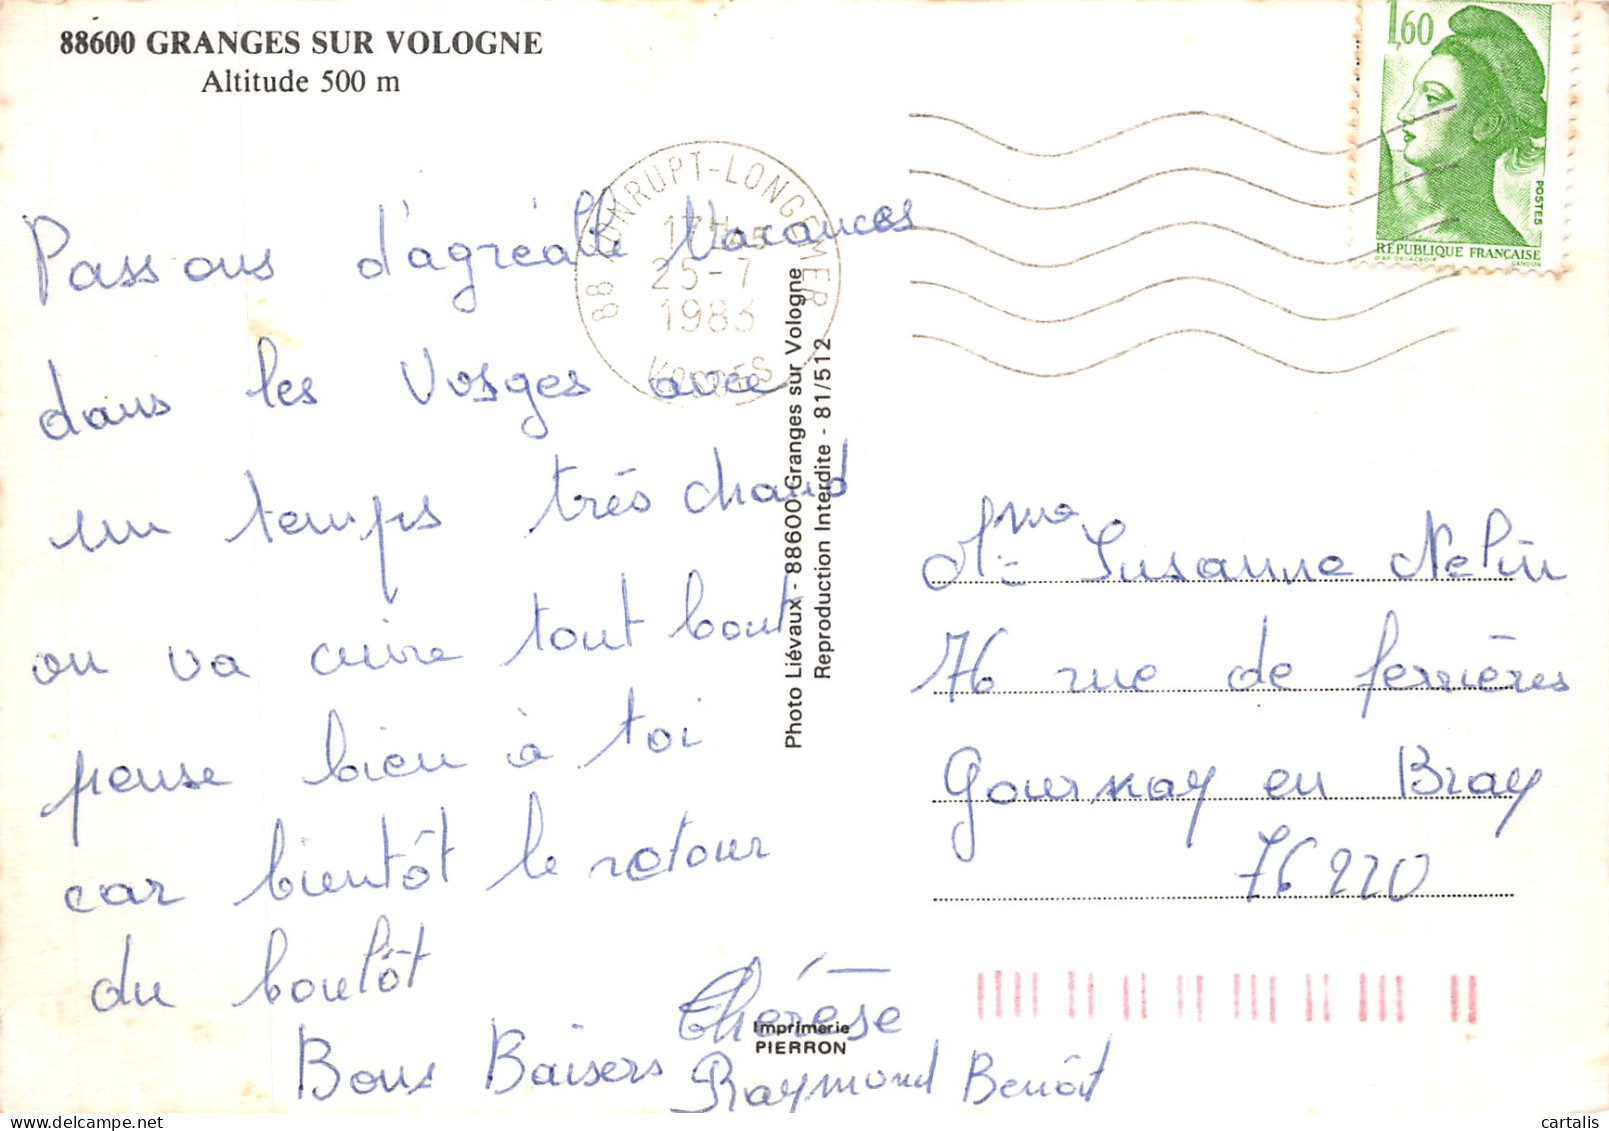 88600 GRANGES SUR VOLOGNE
Altitude 500 m
1,60
POSTES
RÉPUBLIQUE FRANÇAISE
D'AP. DELACROIX GANDON
88 XONRUPT-LONGEMER
17H45
25-7
1983
VOSGES
Passons d'agréable Vacances
dans les Vosges avec
un temps très chaud
on va cuire tout bout
pense bien à toi
car bientôt le retour
du boulôt
Bons Baisers
Thérèse
Raymond Benôit
Photo Liévaux - 88600 Granges sur Vologne
Reproduction Interdite - 81/512
Imprimerie
PIERRON
Mme Susanne Nelin
76 rue de ferrières
Gournay en Bray
76220
cartalis
delcampe.net